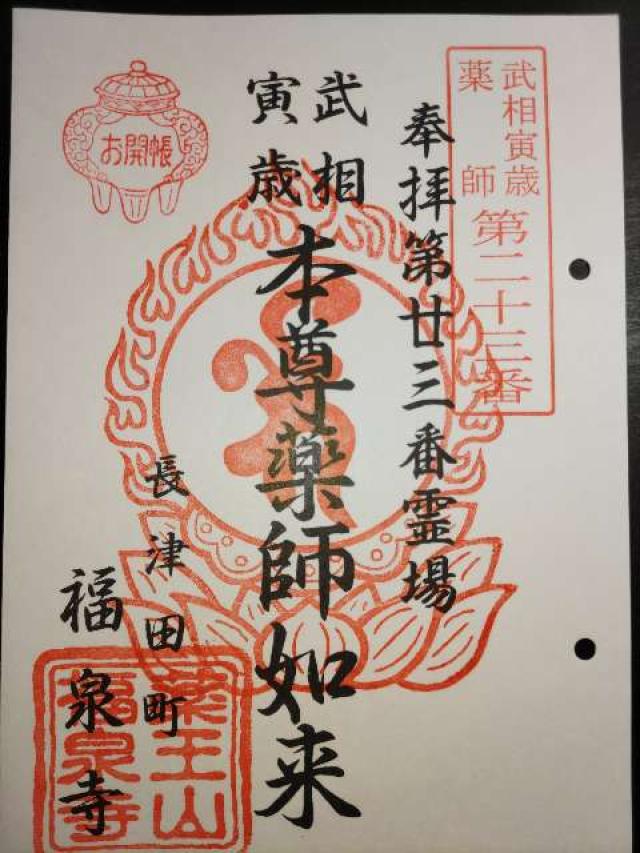 武相寅歳
薬師
第二十三番
奉拝第廿三番霊場
武相
寅歳
本尊薬師如来
長津田町
福泉寺
お開帳
薬王山
福泉寺